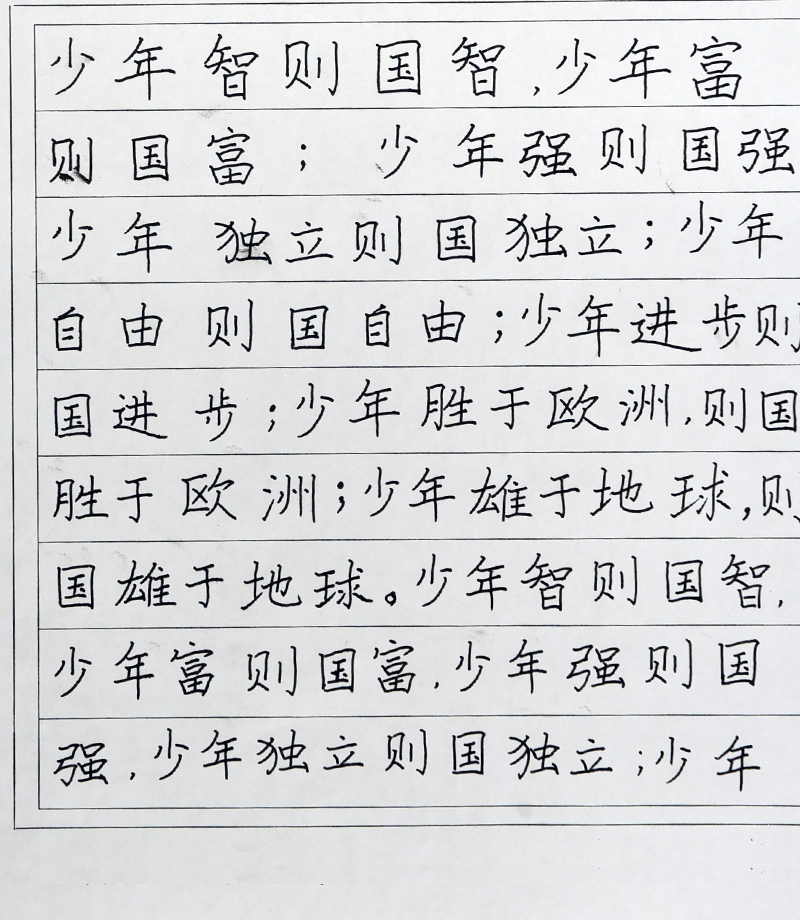 少年智则国智,少年富
则国富;少年强则国强
少年独立则国独立;少年
自由则国自由;少年进步则
国进步;少年胜于欧洲,则国
胜于欧洲;少年雄于地球,则
国雄于地球。少年智则国智,
少年富则国富,少年强则国
强,少年独立则国独立;少年